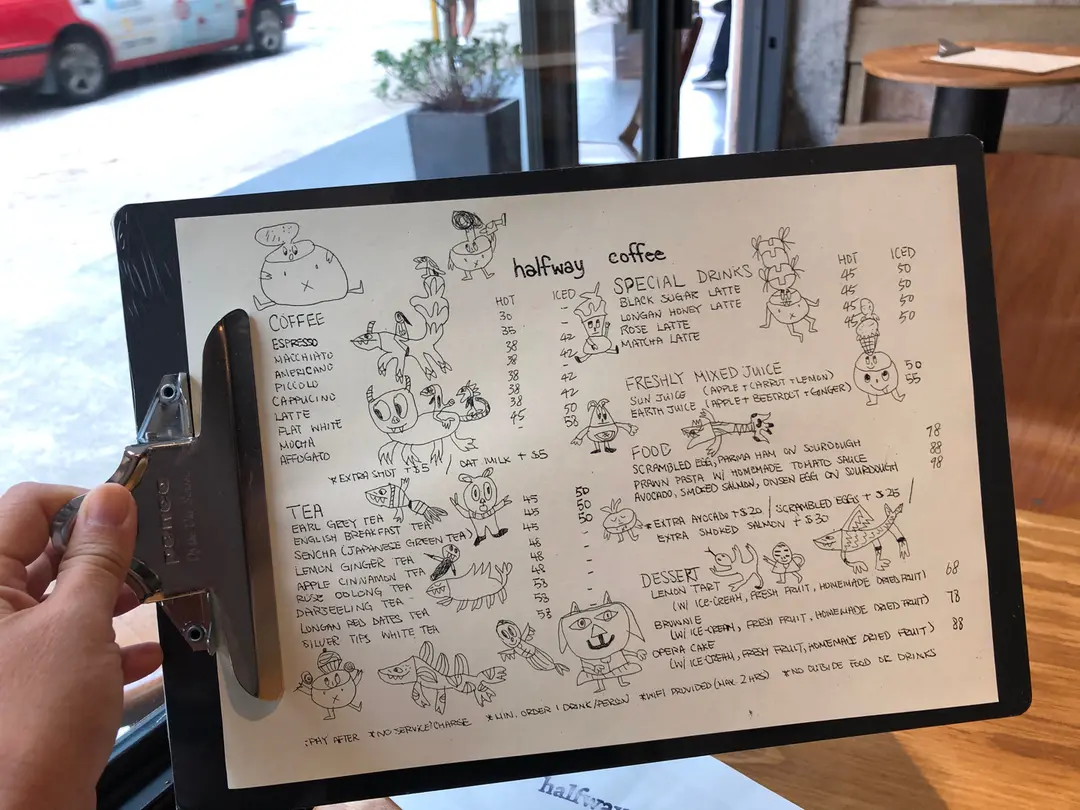 halfway coffee
COFFEE HOT ICED
ESPRESSO 30 -
MACCHIATO 35 -
AMERICANO 38 42
PICCOLO 38 -
CAPPUCINO 38 42
LATTE 38 42
FLAT WHITE 38 -
MOCHA 45 50
AFFOGATO - 58
*EXTRA SHOT +$5 / OAT MILK +$5
TEA
EARL GREY TEA 45 50
ENGLISH BREAKFAST TEA 45 50
SENCHA (JAPANESE GREEN TEA) 45 50
LEMON GINGER TEA 48 -
APPLE CINNAMON TEA 48 -
ROSE OOLONG TEA 48 -
DARJEELING TEA -
LONGAN RED DATES TEA
SILVER TIPS WHITE TEA
SPECIAL DRINKS HOT ICED
BLACK SUGAR LATTE 45 50
LONGAN HONEY LATTE 45 50
ROSE LATTE 45 50
MATCHA LATTE 45 50
FRESHLY MIXED JUICE
SUN JUICE (APPLE + CARROT + LEMON) 50
EARTH JUICE (APPLE + BEETROOT + GINGER) 55
FOOD
SCRAMBLED EGG, PARMA HAM ON SOURDOUGH 78
PRAWN PASTA W/ HOMEMADE TOMATO SAUCE 88
AVOCADO, SMOKED SALMON, ONSEN EGG ON SOURDOUGH 98
*EXTRA AVOCADO +$20 / SCRAMBLED EGGS +$25 /
EXTRA SMOKED SALMON +$30
DESSERT
LEMON TART 68
(W/ ICE-CREAM, FRESH FRUIT, HOMEMADE DRIED FRUIT)
BROWNIE 78
(W/ ICE-CREAM, FRESH FRUIT, HOMEMADE DRIED FRUIT)
OPERA CAKE 88
(W/ ICE-CREAM, FRESH FRUIT, HOMEMADE DRIED FRUIT)
*PAY AFTER *NO SERVICE CHARGE *MIN. ORDER 1 DRINK/PERSON *WIFI PROVIDED (MAX. 2 HRS) *NO OUTSIDE FOOD OR DRINKS
halfway